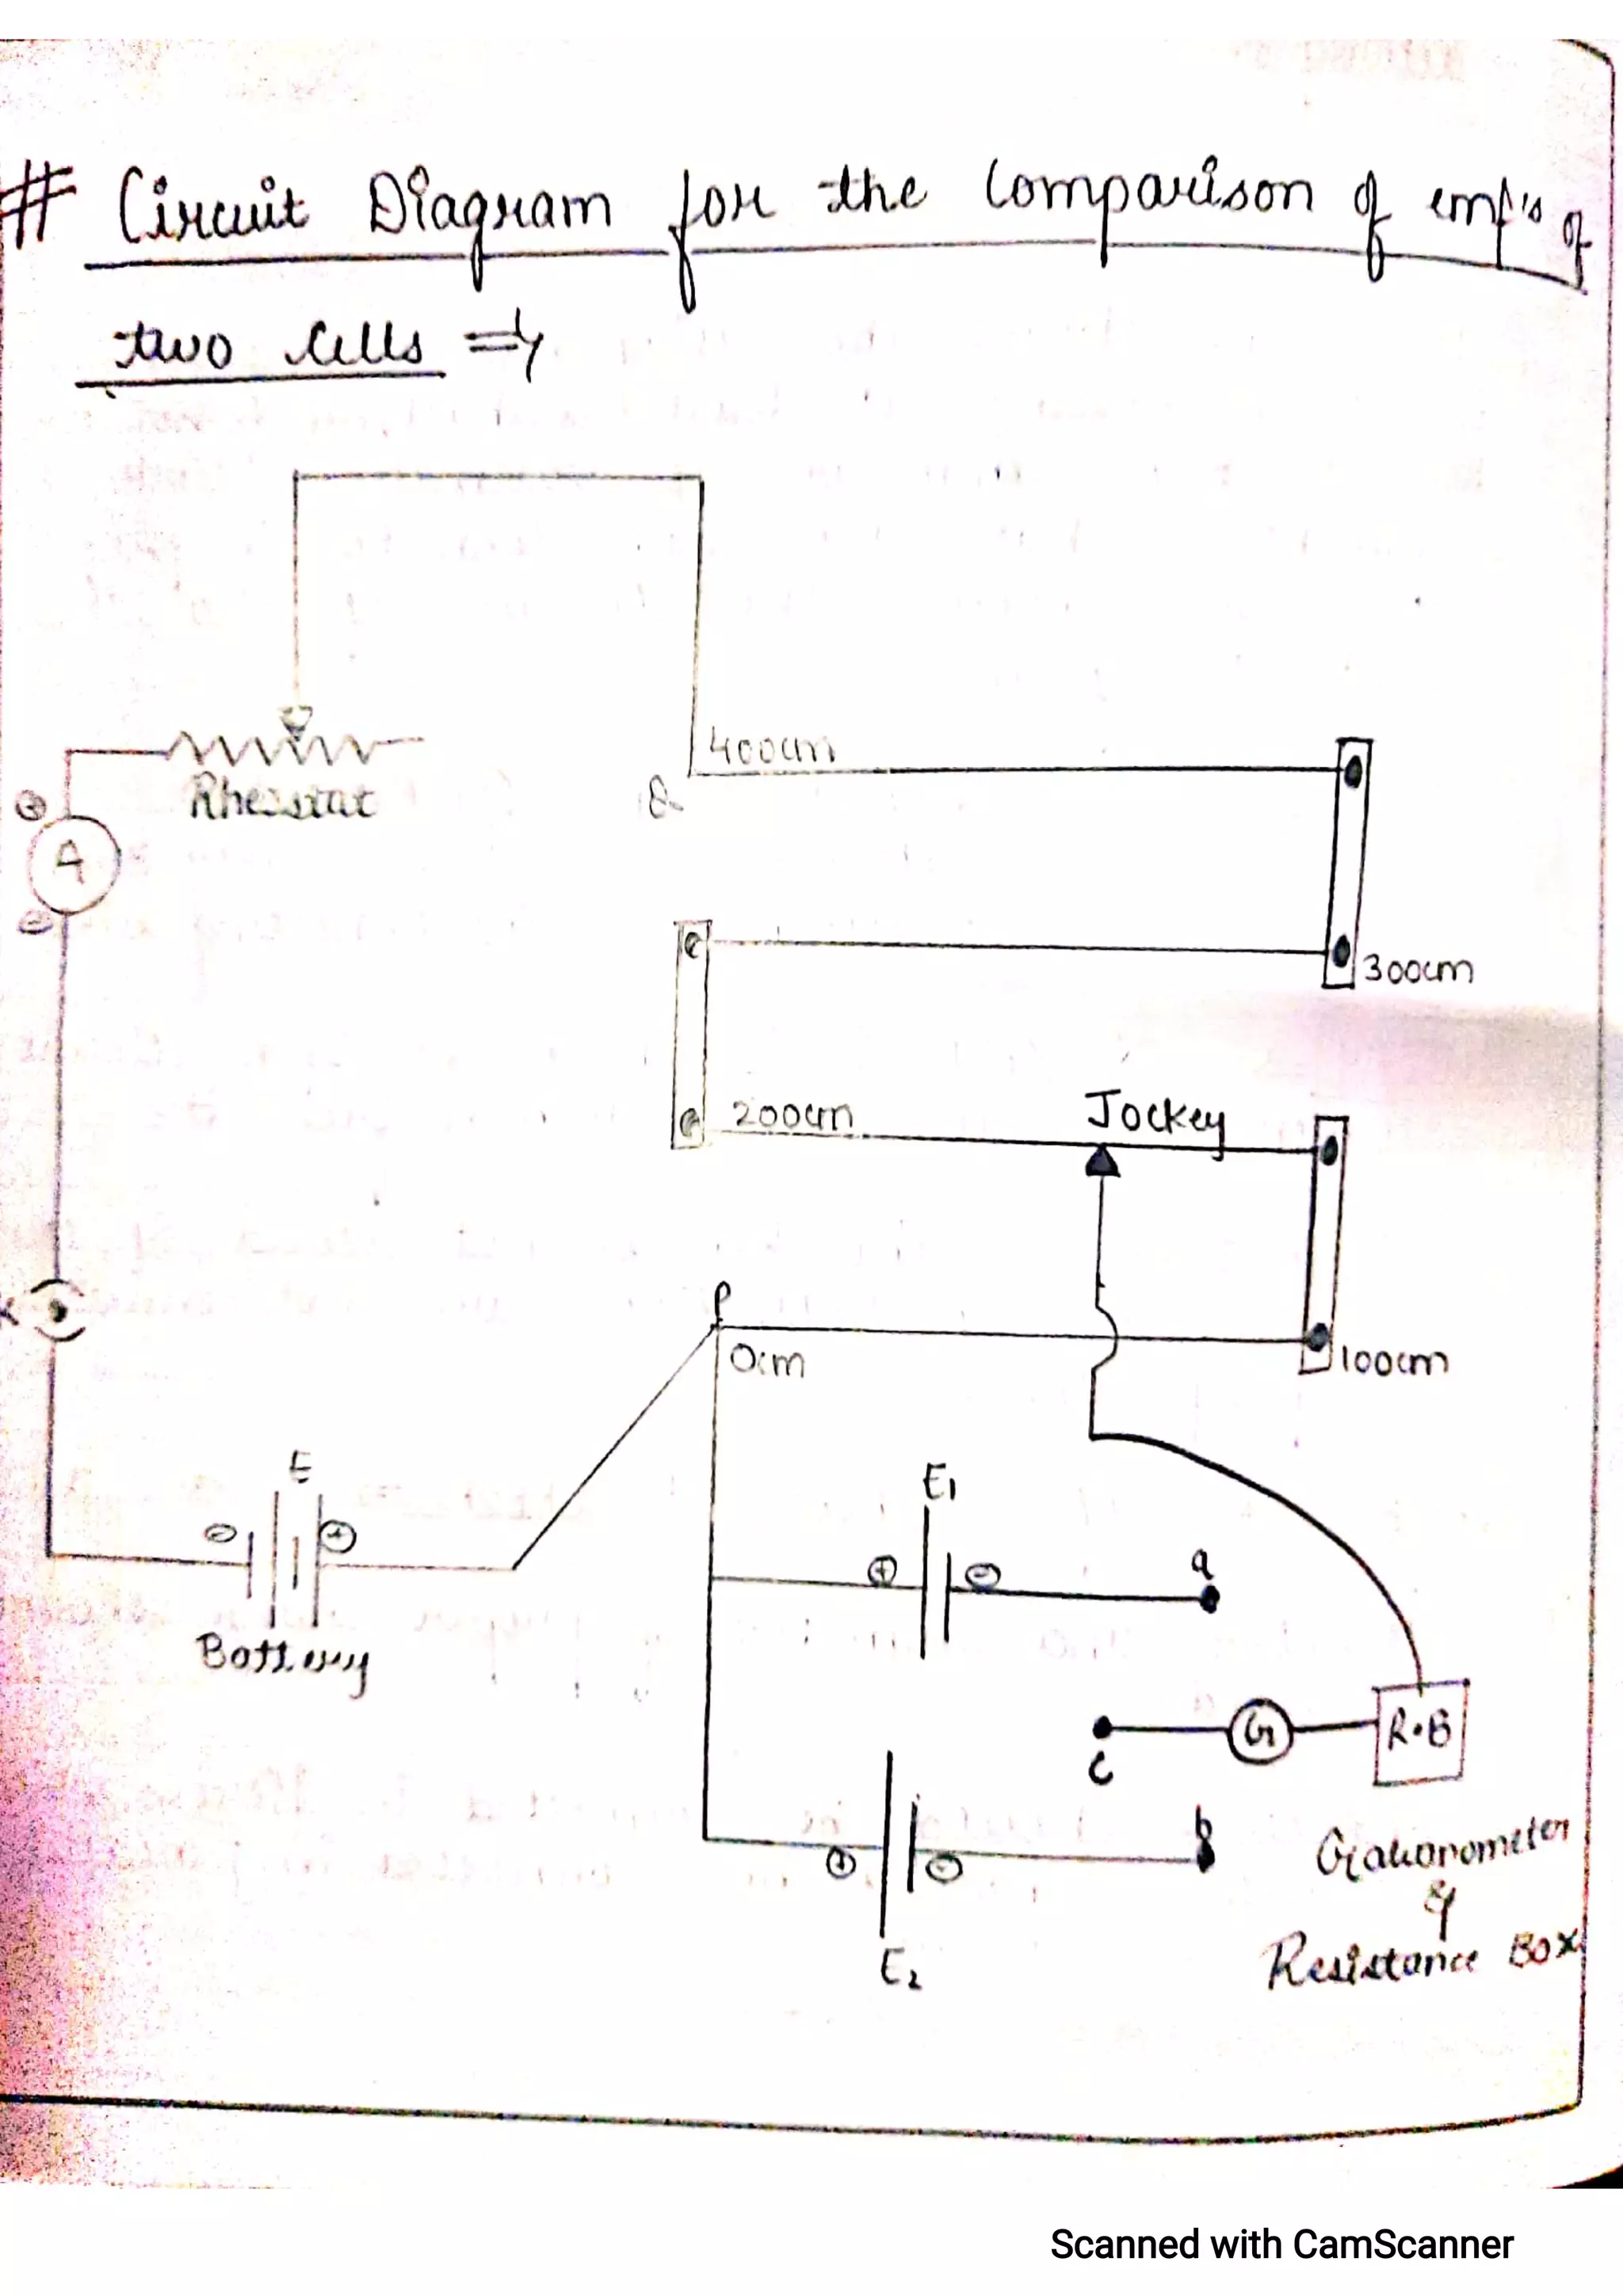 # Circuit Diagram for the Comparison of emf's of
two cells =>
400cm
Rheostat
Q
+
A
-
300cm
200cm
Jockey
K
P
0cm
100cm
E
- +
E1
+ -
a
Battery
C
G
R.B
b
+ -
Galvanometer
&
Resistance Box
E2
Scanned with CamScanner